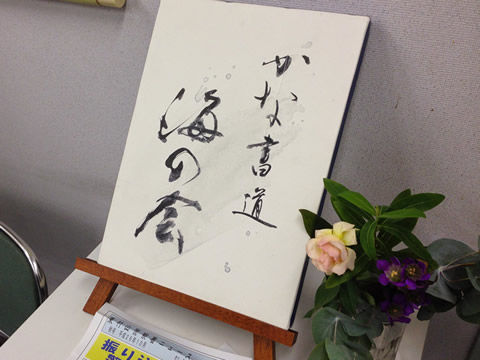 かな書道
海の会
振り込